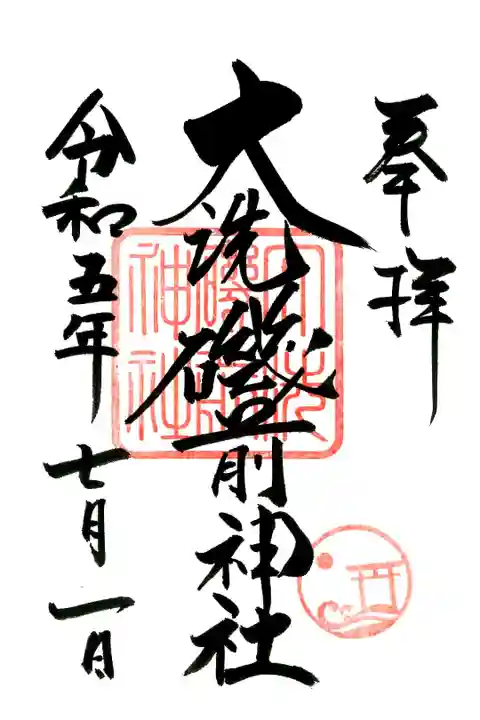 奉拝
大洗磯前神社
令和五年七月一日
大洗
磯前
神社